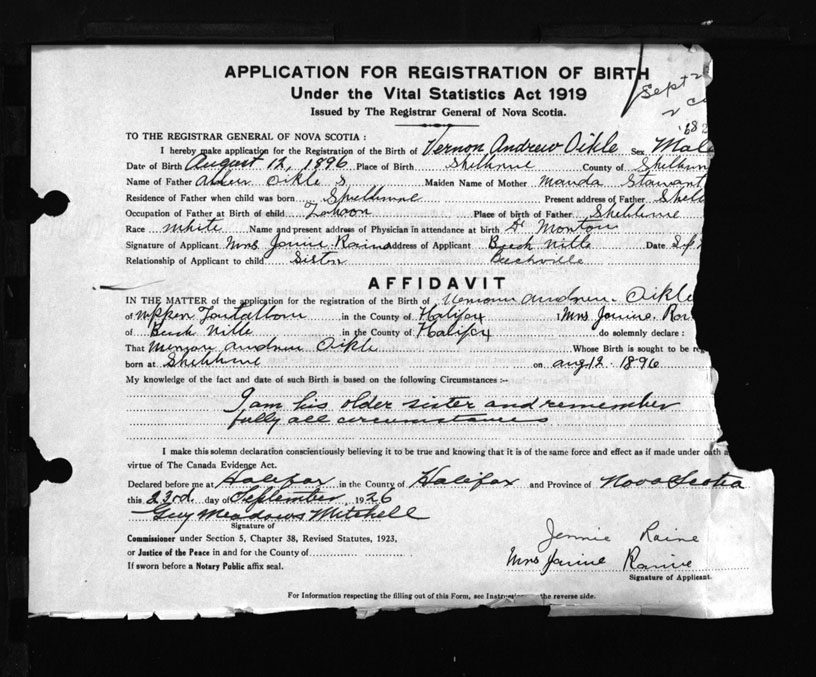 APPLICATION FOR REGISTRATION OF BIRTH
Under the Vital Statistics Act 1919
Issued by The Registrar General of Nova Scotia.
Sept 2
TO THE REGISTRAR GENERAL OF NOVA SCOTIA :
I hereby make application for the Registration of the Birth of Vernon Andrew Oikle Sex Male
Date of Birth August 12, 1896 Place of Birth Shelburne County of Shelburn
Name of Father Oikle Maiden Name of Mother Manda
Residence of Father when child was born Shelburne Present address of Father Shelb
Occupation of Father at Birth of child Place of birth of Father Shelburne
Race White Name and present address of Physician in attendance at birth Dr Morton
Signature of Applicant Mrs Jennie Raine Address of Applicant Beech Ville Date Sep
Relationship of Applicant to child Sister Beechville
AFFIDAVIT
IN THE MATTER of the application for the registration of the Birth of Andrew Oikle
of in the County of Halifax I Mrs Jennie
of Beech Ville in the County of Halifax do solemnly declare :
That Andrew Oikle Whose Birth is sought to be reg
born at Shelburne on Aug 12 1896
My knowledge of the fact and date of such Birth is based on the following Circumstances :-
I am his older sister and remember
fully all circumstances
I make this solemn declaration conscientiously believing it to be true and knowing that it is of the same force and effect as if made under oath
virtue of The Canada Evidence Act.
Declared before me at Halifax in the County of Halifax and Province of Nova Scotia
this 23rd day of September, 1926
Guy Meadows Mitchell
Signature of
Commissioner under Section 5, Chapter 38, Revised Statutes, 1923,
or Justice of the Peace in and for the County of
If sworn before a Notary Public affix seal.
Jennie Raine
Mrs Jennie Raine
Signature of Applicant.
For Information respecting the filling out of this Form, see the reverse side.